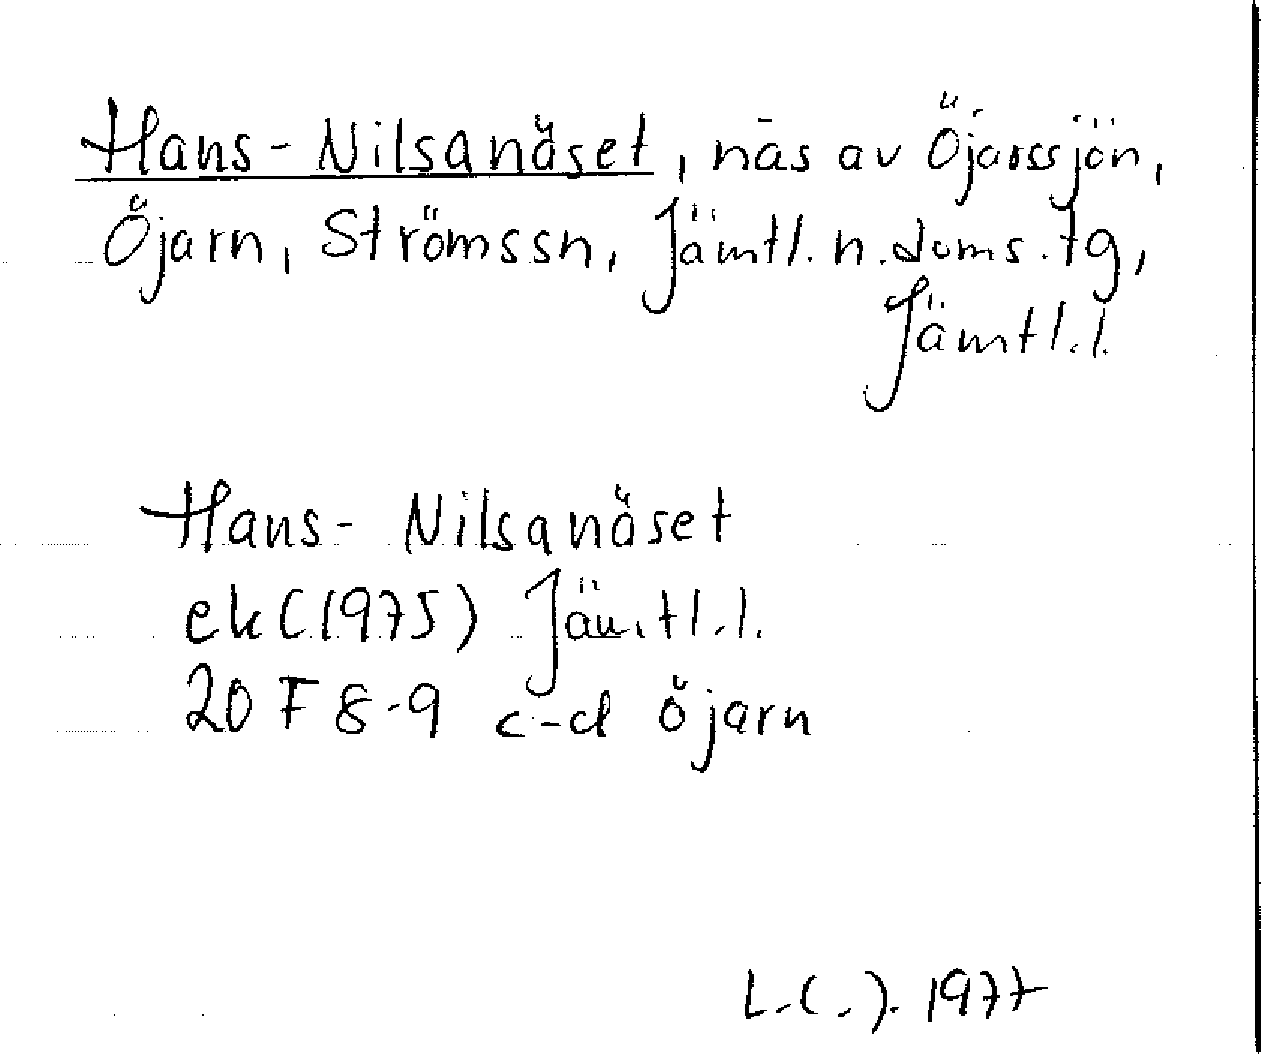 Hans-Nilsanäset, näs av Öjarssjön,
Öjarn, Strömssn, Jämtl. n. doms. tg,
Jämtl. l.
Hans- Nilsanäset
ek (1975) Jämtl. l.
20 F 8-9 c-d Öjarn
1977